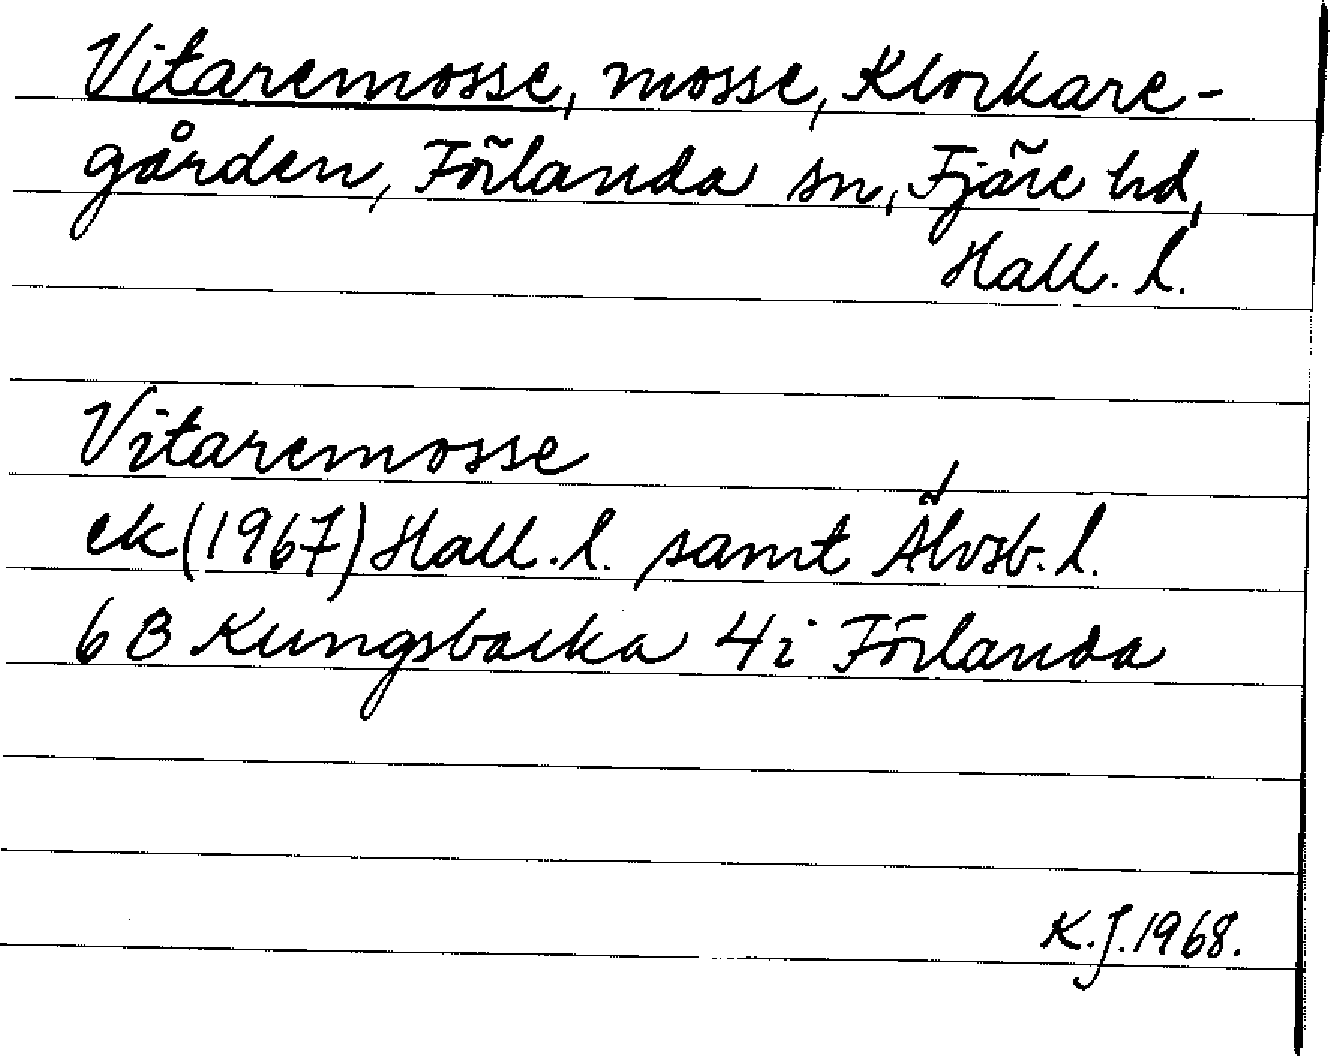 Vitaremosse, mosse, Klockare-
gården, Förlanda sn, Fjäre hd,
Hall. l.
Vitaremosse
ek (1967) Hall. l. samt Älvsb. l.
6B Kungsbacka 4i Förlanda
K.J. 1968.